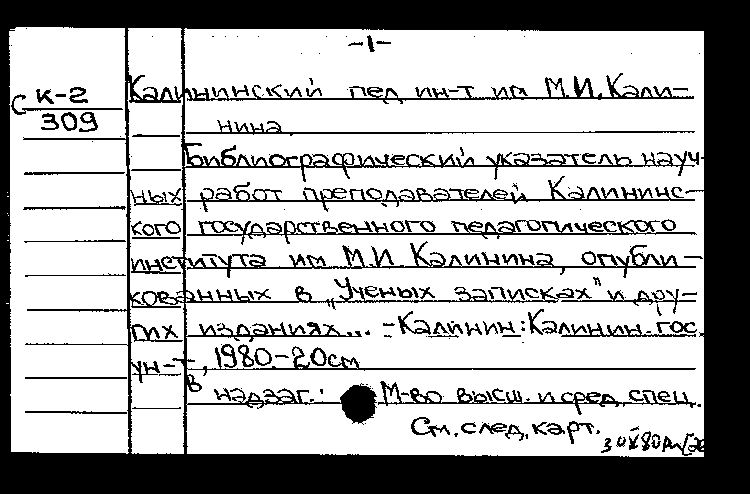 -1-
С К-2
309
Калининский пед. ин-т им М.И. Кали-
нина.
Библиографический указатель науч-
ных работ преподавателей Калининс-
кого государственного педагогического
института им М.И. Калинина, опубли-
кованных в „Ученых записках" и дру-
гих изданиях... -Калинин: Калинин. гос.
ун-т, 1980.-20см
В надзаг.: М-во высш. и сред. спец.
См. след. карт.